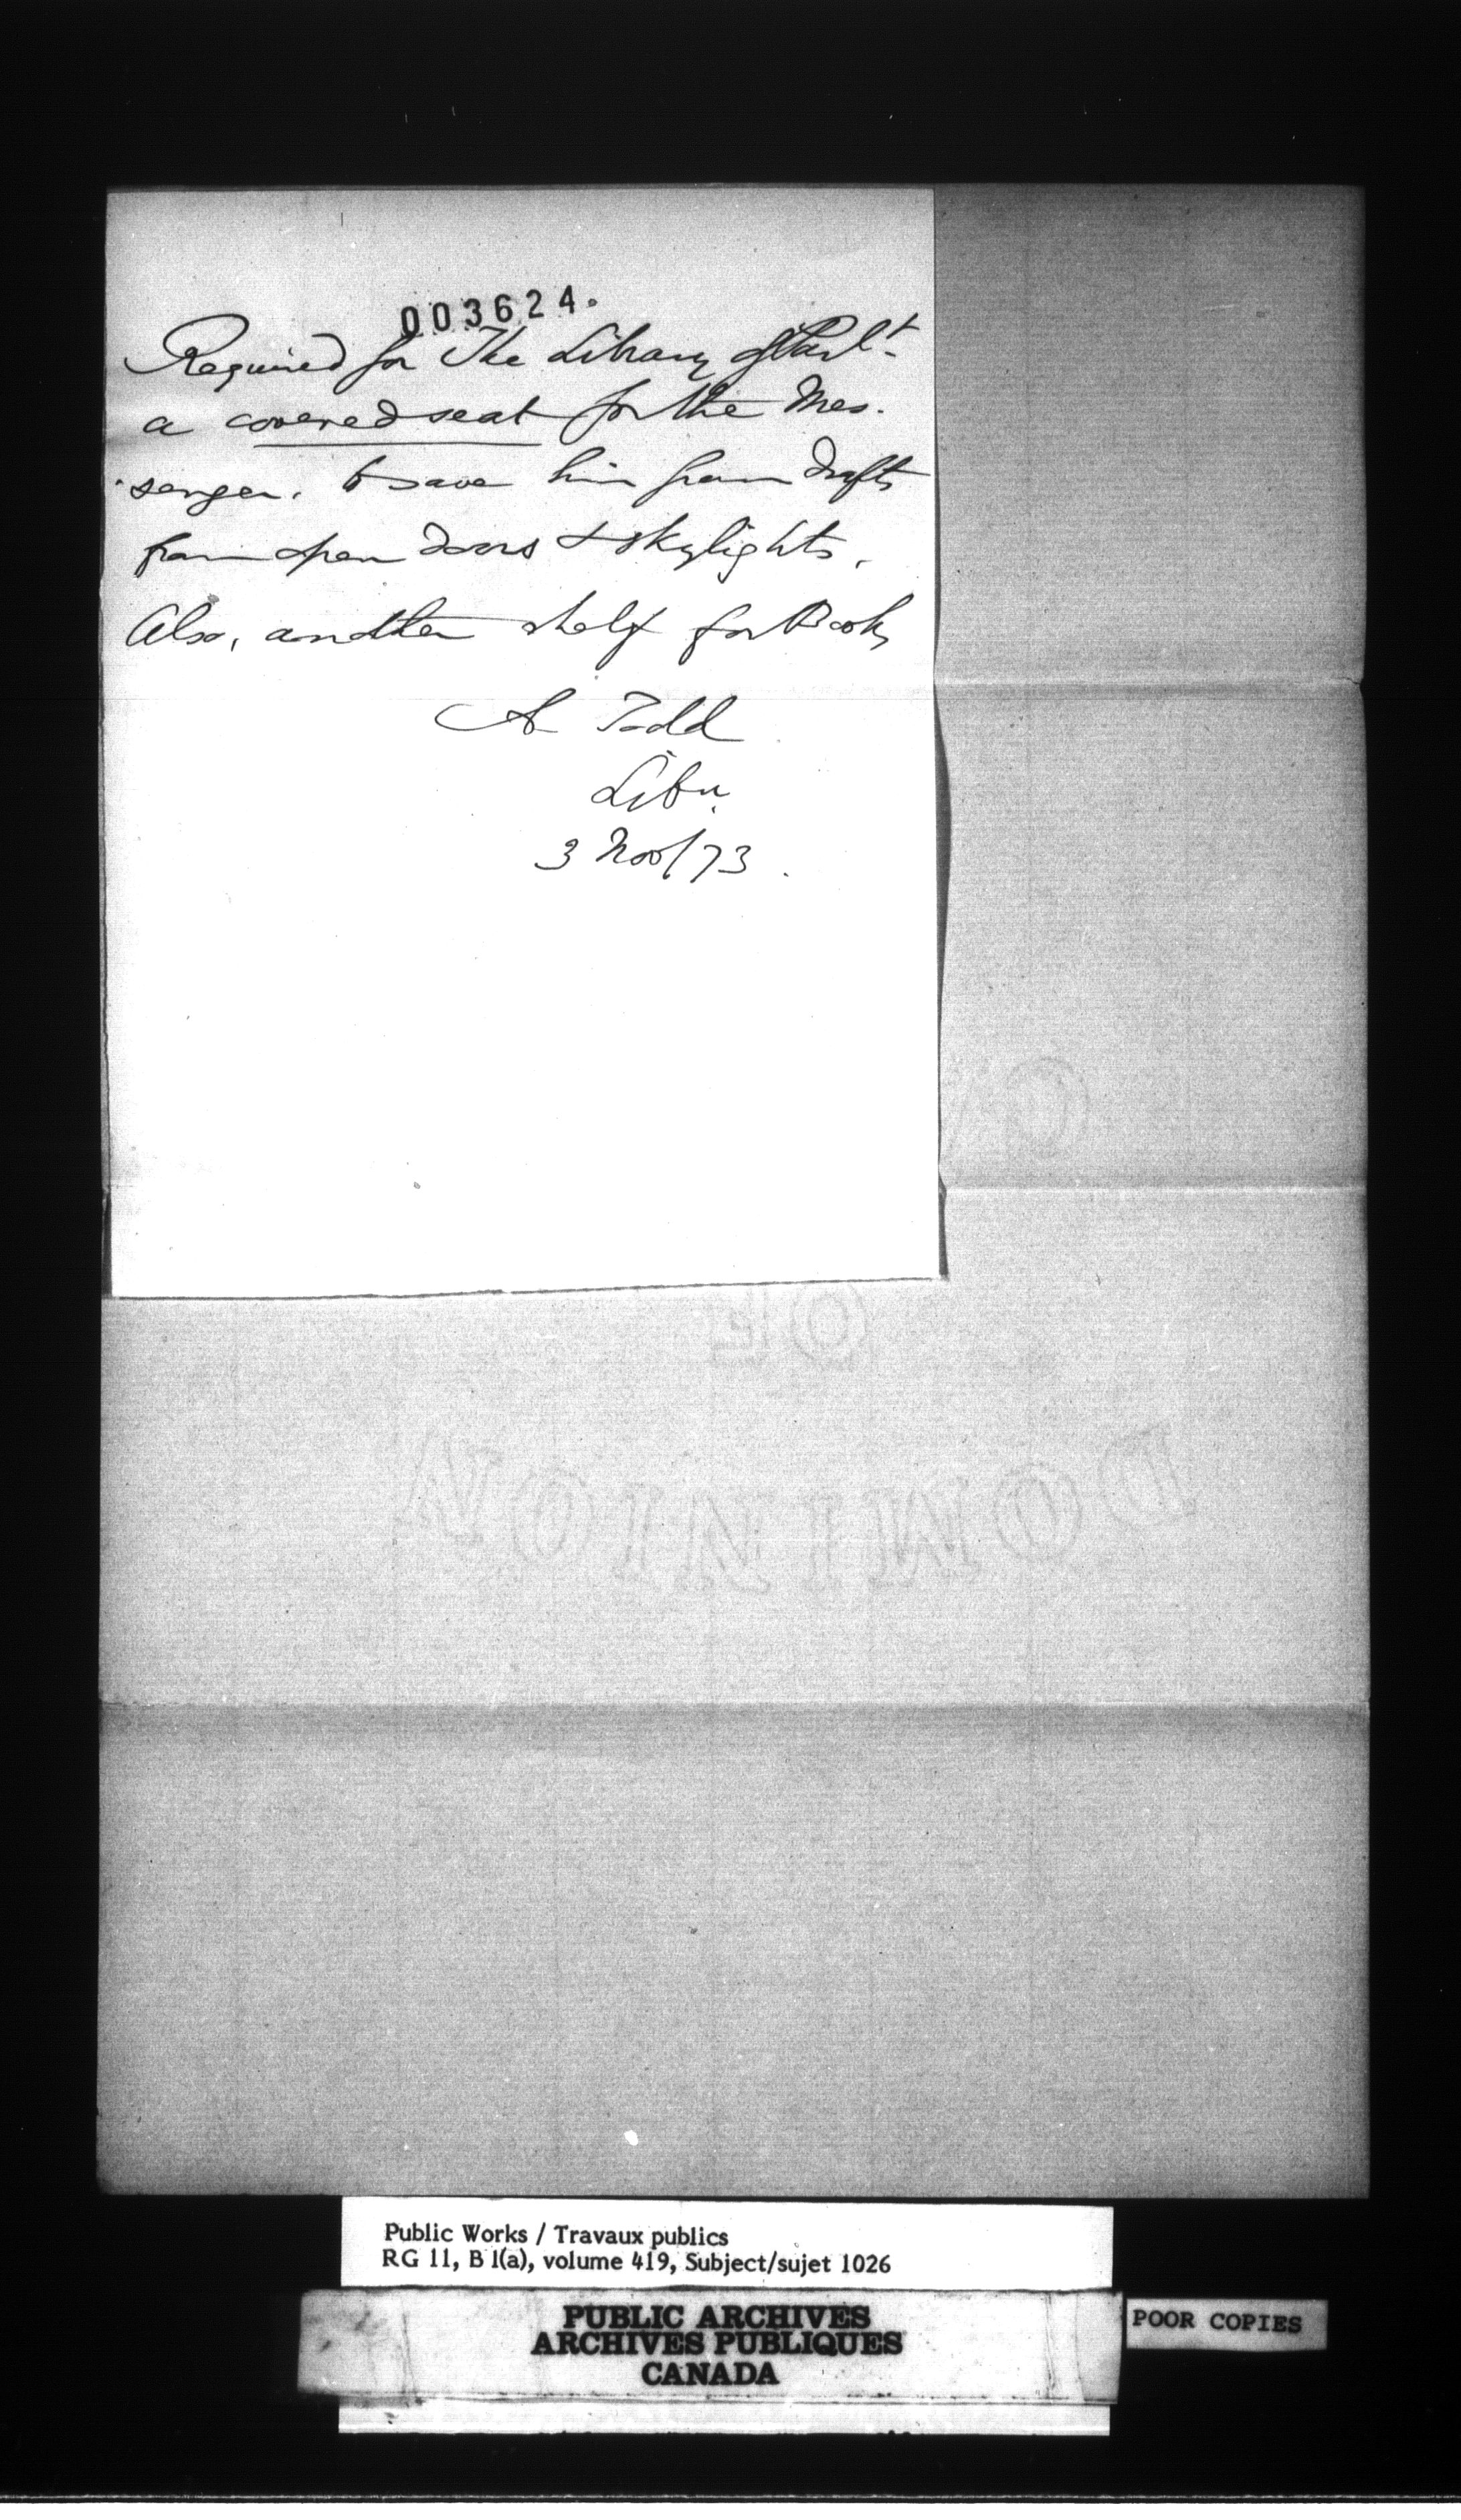 003624.
Required for The Library of Parlt.
a covered seat for the Mes.
senger. to save him from drafts
from open doors & skylights.
Also, another shelf for Books
A Todd
Libn.
3 Nov/73.
OF
DOMINION
Public Works / Travaux publics
RG 11, B 1(a), volume 419, Subject/sujet 1026
PUBLIC ARCHIVES
ARCHIVES PUBLIQUES
CANADA
POOR COPIES